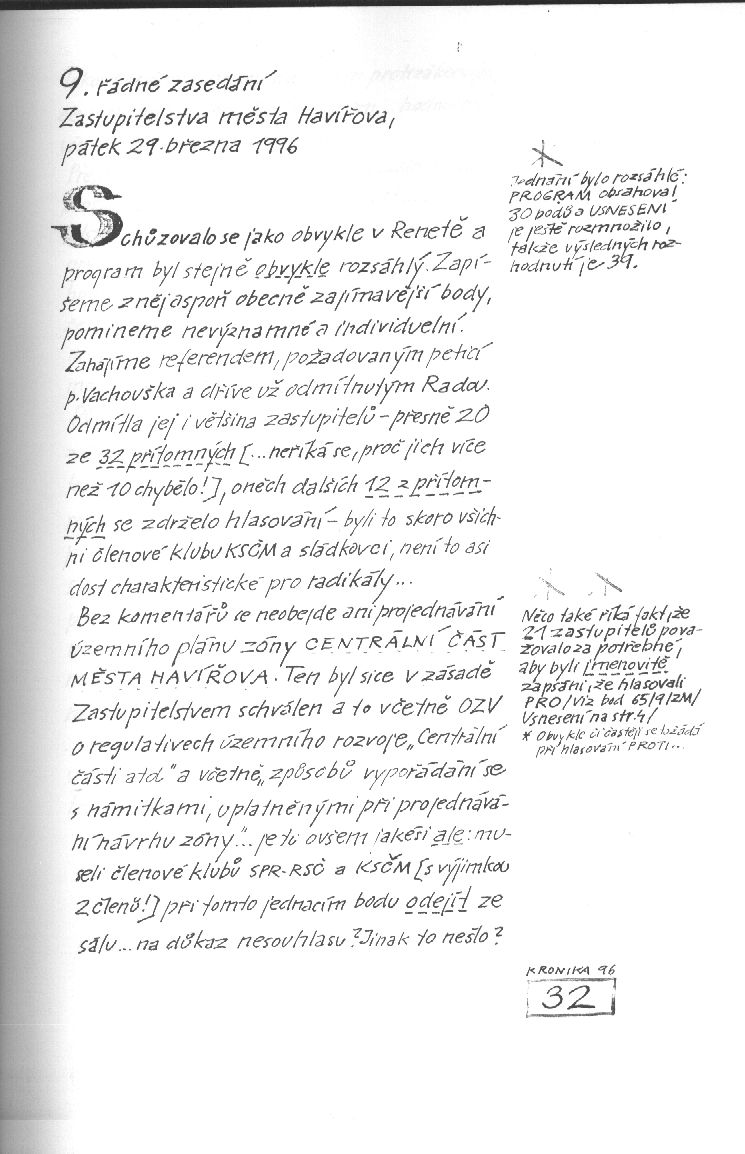 9. řádné zasedání
Zastupitelstva města Havířova,
pátek 29. března 1996
Schůzovalo se jako obvykle v Renetě a
program byl stejně obvykle rozsáhlý. Zapí-
šeme z něj aspoň obecně zajímavější body,
pomineme nevýznamné a individuelní.
Zahájíme referendem, požadovaným peticí
p. Vachouška a dříve už odmítnutým Radou.
Odmítla jej i většina zastupitelů - přesně 20
ze 32 přítomných [...neříká se, proč jich více
než 10 chybělo!], oněch dalších 12 z přítom-
ných se zdrželo hlasování - byli to skoro všich-
ni členové klubu KSČM a sládkovci, není to asi
dost charakteristické pro radikály...
Bez komentářů se neobejde ani projednávání
územního plánu zóny CENTRÁLNÍ ČÁST
MĚSTA HAVÍŘOVA. Ten byl sice v zásadě
Zastupitelstvem schválen a to včetně OZV
o regulativech územního rozvoje „Centrální
části atd." a včetně „způsobů vypořádání se
s námitkami, uplatněnými při projednává-
ní návrhu zóny"... je tu ovšem jakési ale: mu-
seli členové klubů SPR-RSČ a KSČM [s výjimkou
2 členů!] při tomto jednacím bodu odejít ze
sálu... na důkaz nesouhlasu? Jinak to nešlo?
*
Jednání bylo rozsáhlé:
PROGRAM obsahoval
30 bodů a USNESENÍ
je ještě rozmnožilo,
takže výsledných roz-
hodnutí je 39.
* *
Něco také říká fakt, že
21 zastupitelů pova-
žovalo za potřebné,
aby byli jmenovitě
zapsáni, že hlasovali
PRO /viz bod 65/9/ZM/
Usnesení na str. 4/
* Obvykle či častěji se to žádá
při hlasování PROTI...
KRONIKA 96
32